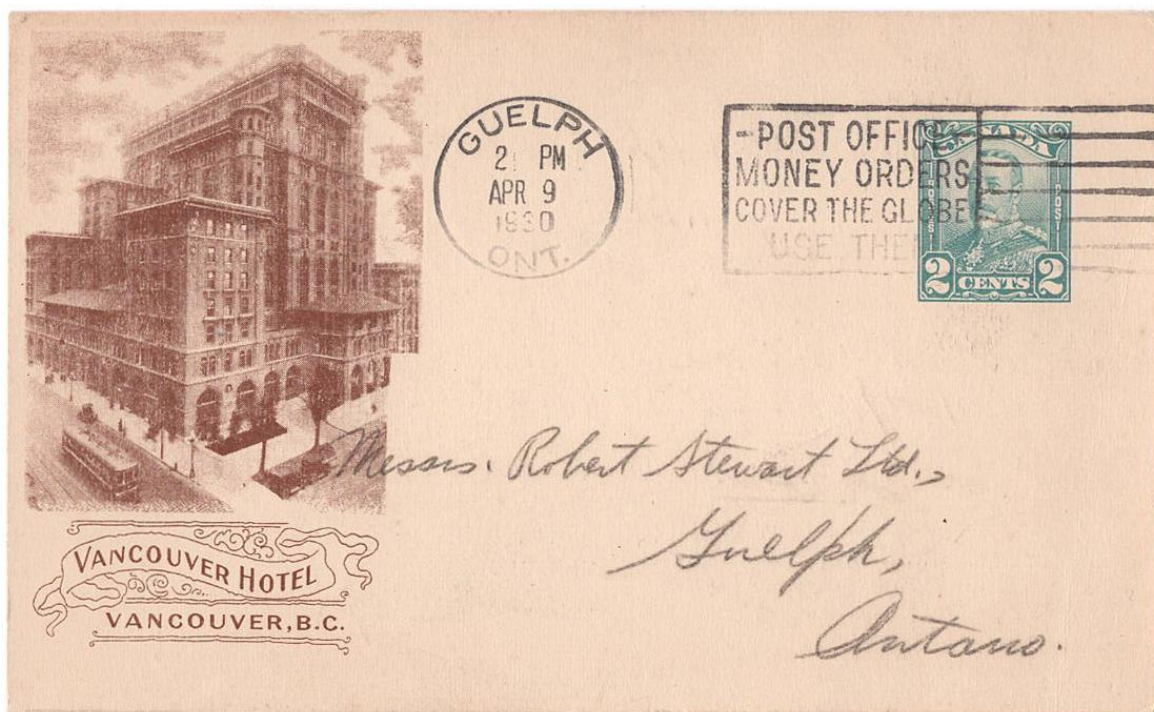 GUELPH
2 PM
APR 9
1930
ONT.
-POST OFFICE-
MONEY ORDERS
COVER THE GLOBE
USE THEM
CANADA
POSTES
POST
2 CENTS 2
Messrs. Robert Stewart Ltd.,
Guelph,
Ontario.
VANCOUVER HOTEL
VANCOUVER, B.C.